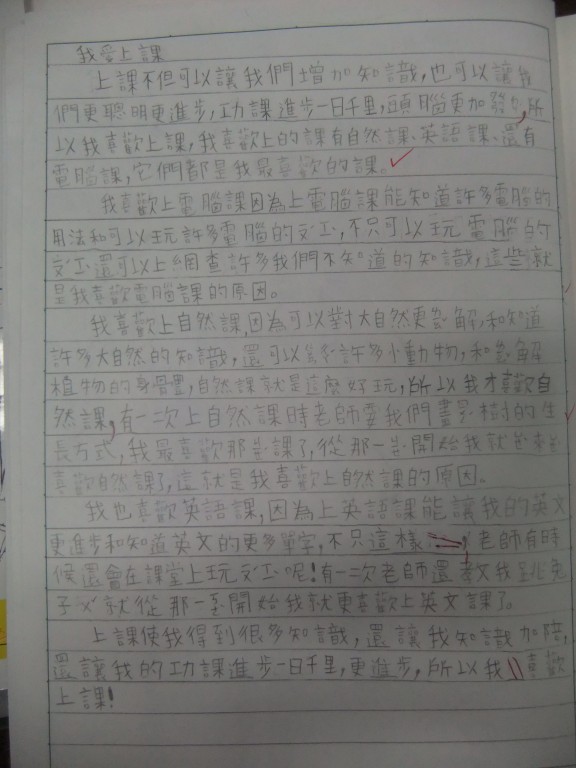 我愛上課
上課不但可以讓我們增加知識,也可以讓我
們更聰明更進步,功課進步一日千里,頭腦更加發,所
以我喜歡上課,我喜歡上的課有自然課、英語課、還有
電腦課,它們都是我最喜歡的課。
我喜歡上電腦課因為上電腦課能知道許多電腦的
用法和可以玩許多電腦的ㄡㄒㄧ,不只可以玩電腦的
ㄡㄒㄧ還可以上網查許多我們不知道的知識,這些就
是我喜歡電腦課的原因。
我喜歡上自然課,因為可以對大自然更解,和知道
許多大自然的知識,還可以許多小動物,和解
植物的身體,自然課就是這麼好玩,所以我才喜歡自
然課,有一次上自然課時老師要我們畫樹的生
長方式,我最喜歡那課了,從那一開始我就
喜歡自然課了,這就是我喜歡上自然課的原因。
我也喜歡英語課,因為上英語課能讓我的英文
更進步和知道英文的更多單字,不只這樣,老師有時
候還會在課堂上玩ㄡㄒㄧ呢!有一次老師還教我跳兔
子就從那一開始我就更喜歡上英文課了。
上課使我得到很多知識,還讓我知識加倍,
還讓我的功課進步一日千里,更進步,所以我喜歡
上課!